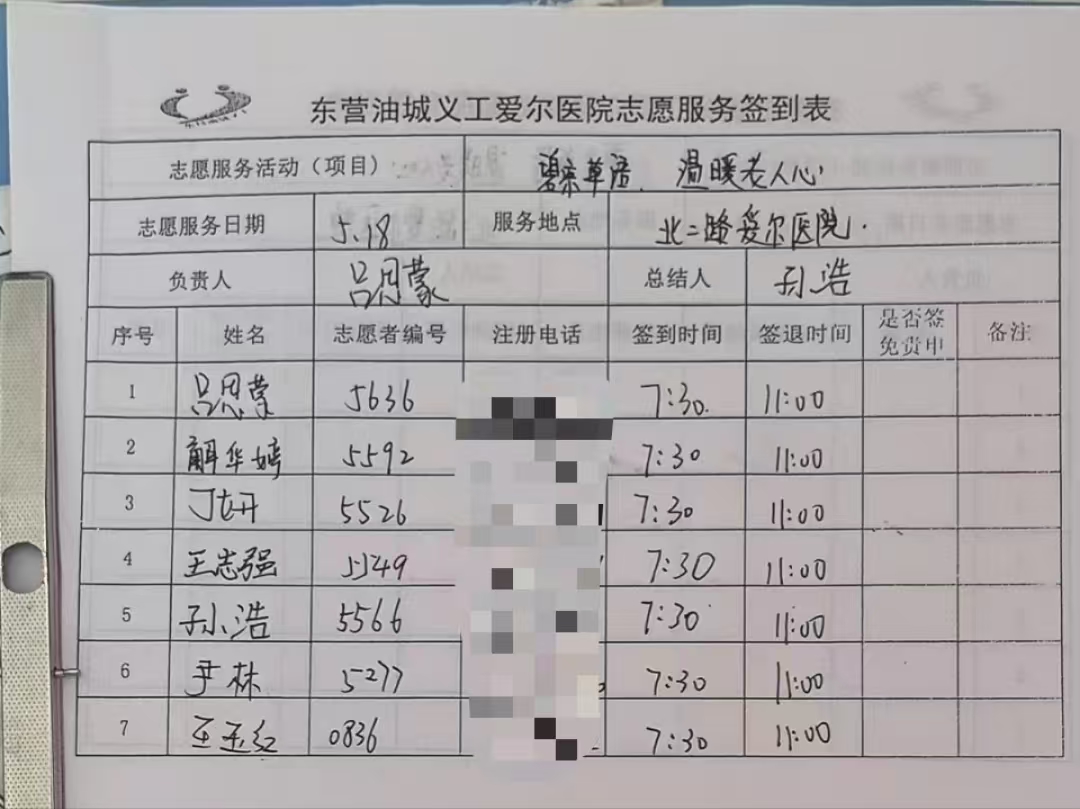 东营油城义工爱尔医院志愿服务签到表
志愿服务活动（项目） 草语 温暖老人心
志愿服务日期 5.18 服务地点 北二路爱尔医院.
负责人 吕思蒙 总结人 孙浩
序号 姓名 志愿者编号 注册电话 签到时间 签退时间 是否签免责申 备注
1 吕思蒙 5636 7:30. 11:00
2 解华婷 5592 7:30 11:00
3 丁妍 5526 7:30 11:00
4 王志强 5549 7:30 11:00
5 孙浩 5566 7:30 11:00
6 尹林 5277 7:30 11:00
7 王玉红 0836 7:30 11:00